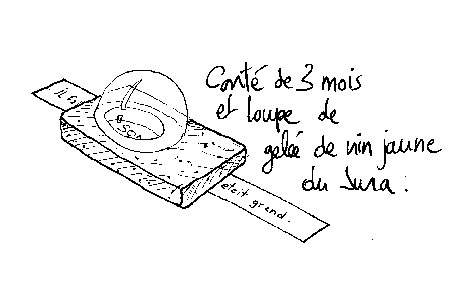 Conté de 3 mois
et loupe de
gelée de vin jaune
du Jura :
IL
etait grand.